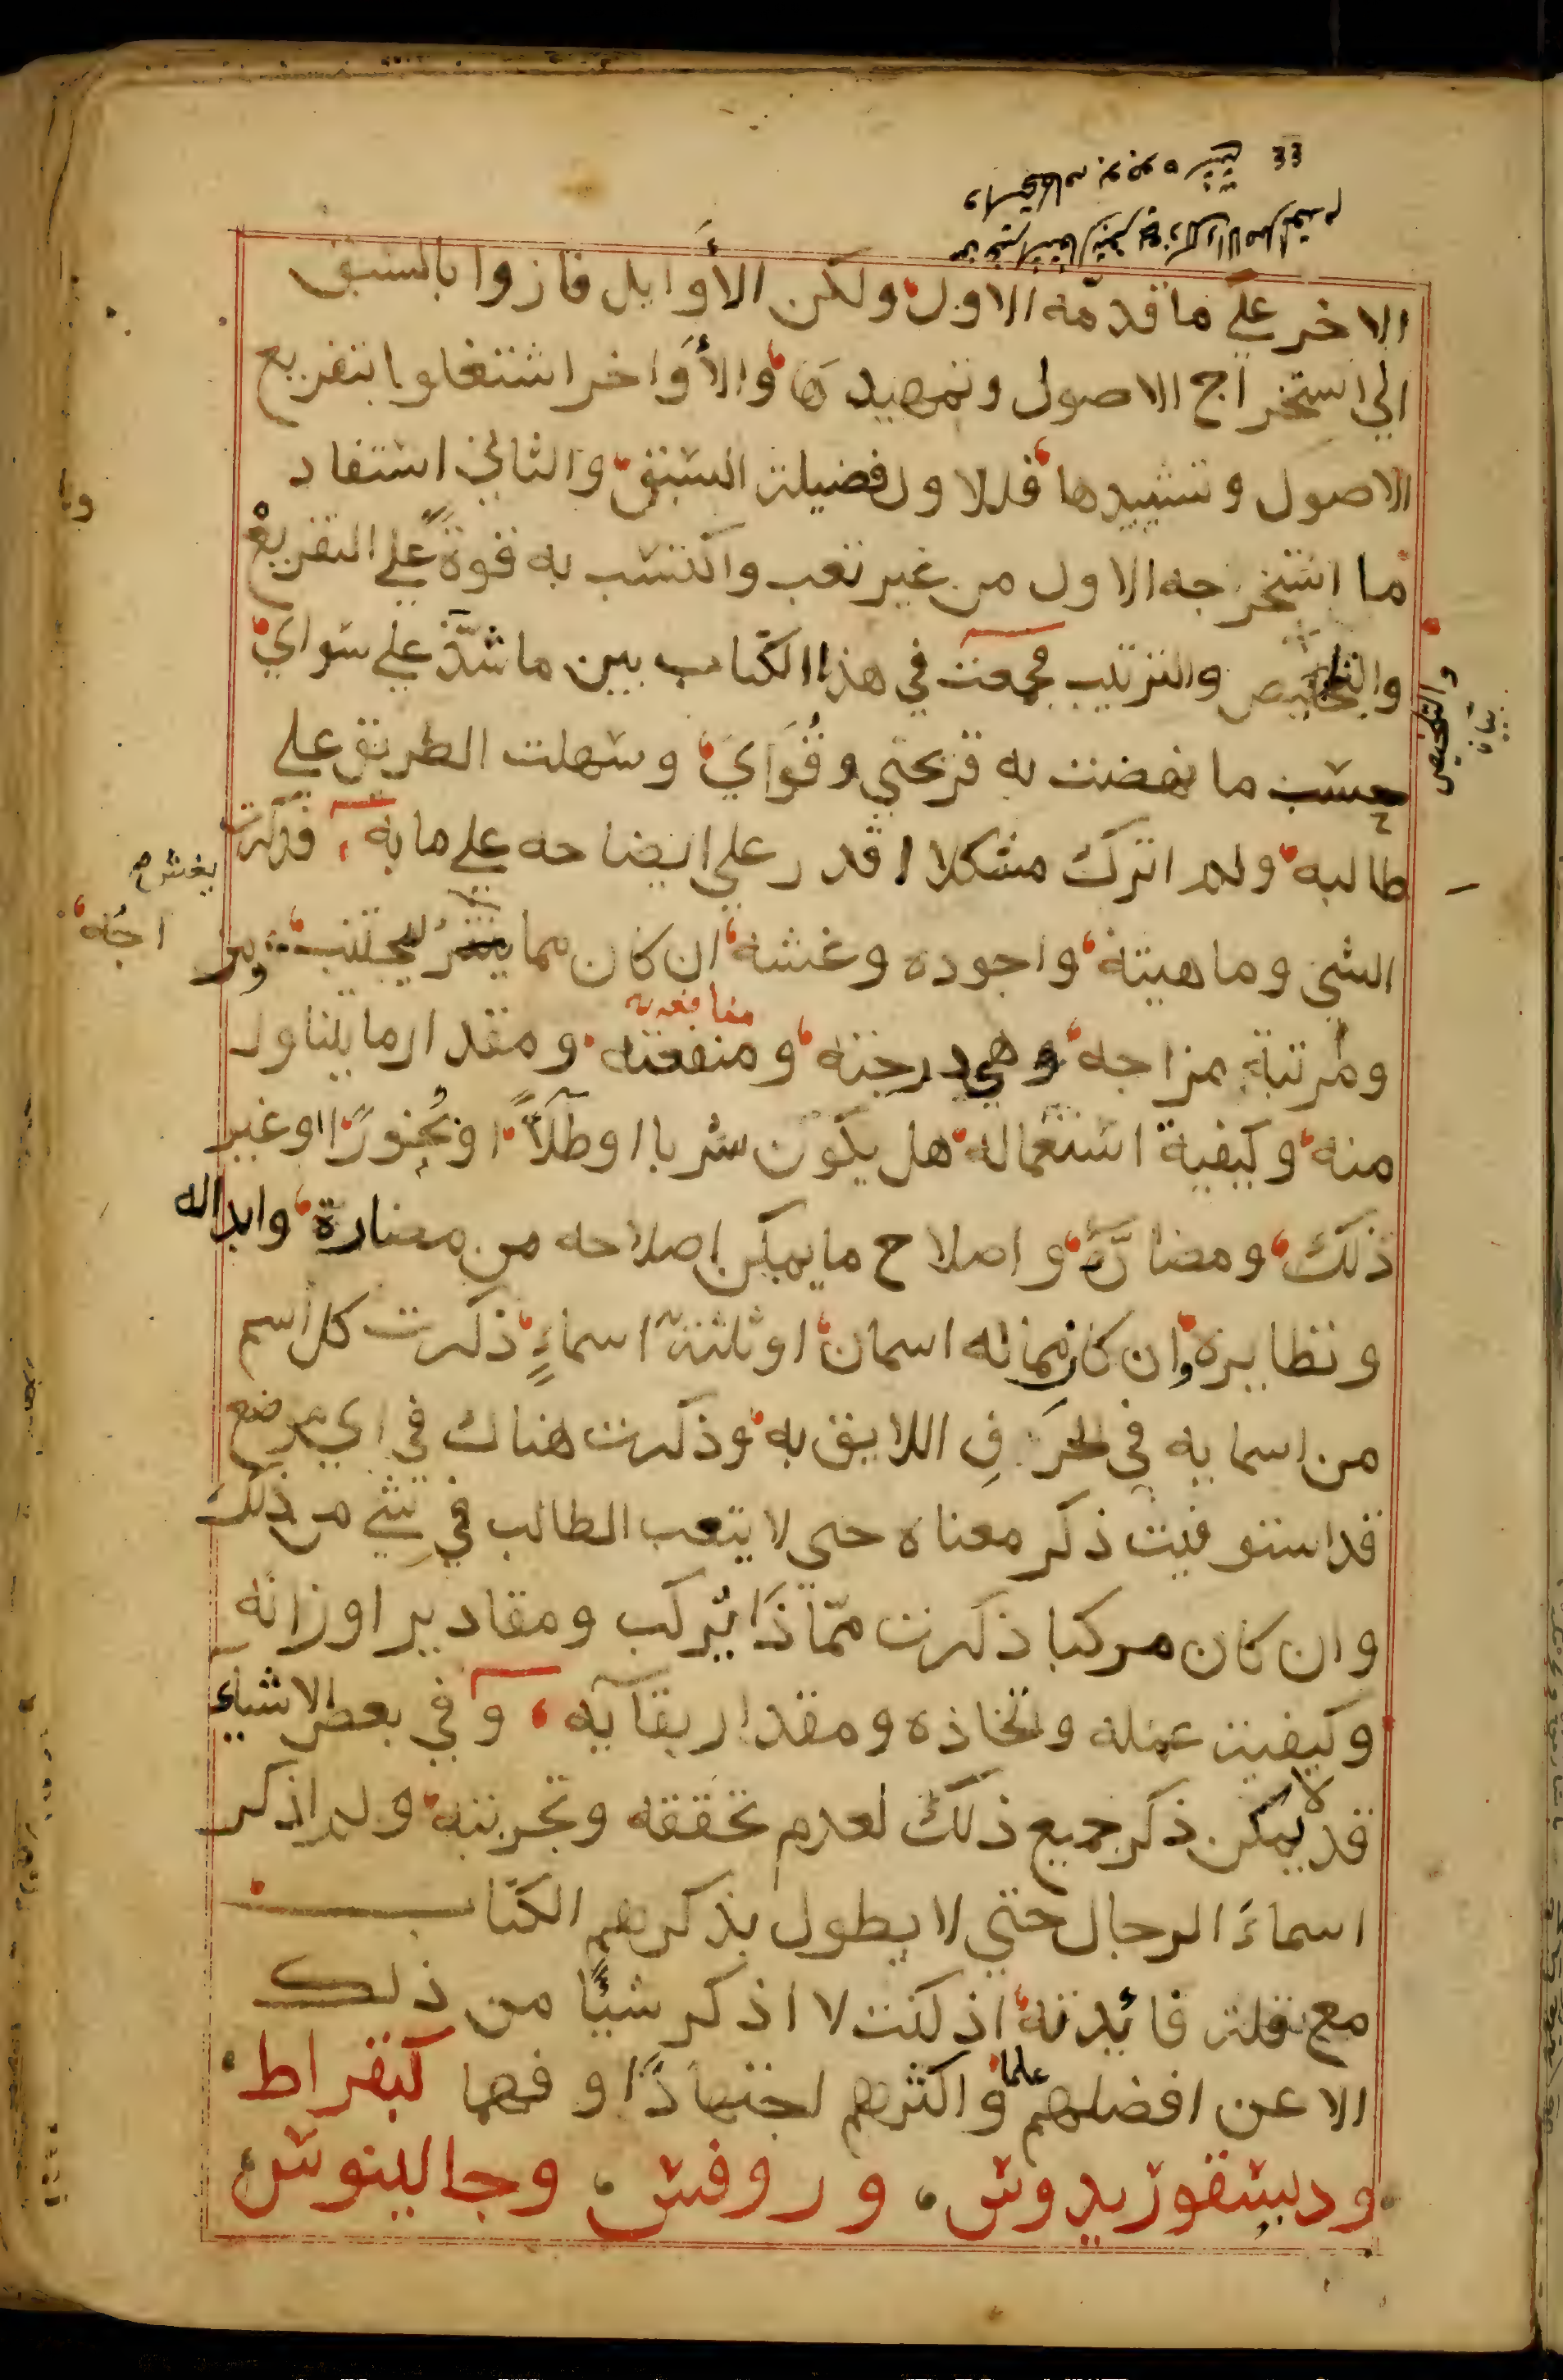 الاخر علي ما قدمه الاول ولكن الأوايل فازوا بالسبق
الي استخراج الاصول وتمهيدها والأواخر اشتغلوا بتفريع
الاصول وتشييدها فللاول فضيلة السبق والثاني استفاد
ما استخرجه الاول من غير تعب واكتسب به قوة علي التفريع
والتلخيص والترتيب فجمعت في هذا الكتاب بين ما شذ علي سواي
والتلخيص
بيان
حسب ما نهضت به قريحتي وقواي وسهلت الطريق علي
طالبه ولم اترك مشكلا اقدر علي ايضاحه علي ما به فذكرت
الشي وماهيته واجوده وغشه ان كان مما يغش ليجتنب ومز
يغش م
اجه
ومرتبة مزاجه وهي درجته ومنفعته ومقدار ما يتناول
منافعه
منه وكيفية استعماله هل يكون شربا او طلاءً او بخورًا او غير
ذلك ومضارّه واصلاح ما يمكن اصلاحه من مضاره وابداله
ونظايره وان كان مما له اسمان او ثلثة اسماءٍ ذكرت كل اسم
من اسمايه في الحرف اللايق به وذكرت هناك في اي موضع
قد استوفيت ذكر معناه حتي لا يتعب الطالب في شي من ذلك
وان كان مركبا ذكرت ممّا ذا يركب ومقادير اوزانه
وكيفية عمله واتخاذه ومقدار بقآيه وفي بعض الاشياء
قد لا يمكن ذكر جميع ذلك لعدم تحققه وتجربته ولم اذكر
اسماء الرجال حتي لا يطول بذكرهم الكتاب
مع قلة فائدته اذ كنت لا اذكر شيئًا من ذلك
الا عن افضلهم علما واكثرهم اجتهادًا وفهما كبقراط
وديسقوريدوس وروفس وجالينوس